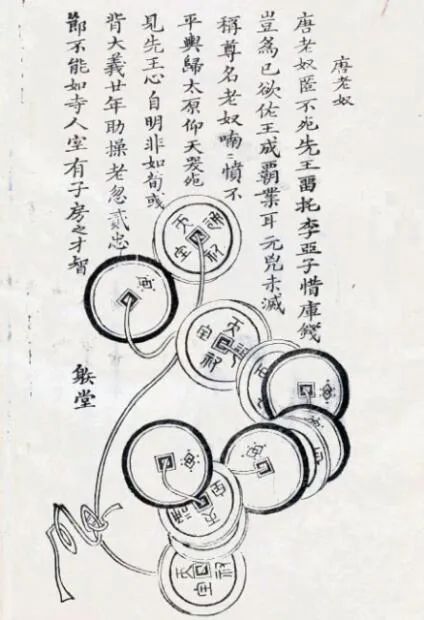 唐老奴
唐老奴匿不死先王畱托李亞子惜庫錢
豈為已欲佐王成霸業耳元兇未滅
稱尊名老奴喃〻憤不
平輿歸太原仰天哭死
見先王心自明非如荀彧
背大義廿年助操老忽貳忠
節不能如寺人室有子房之才智